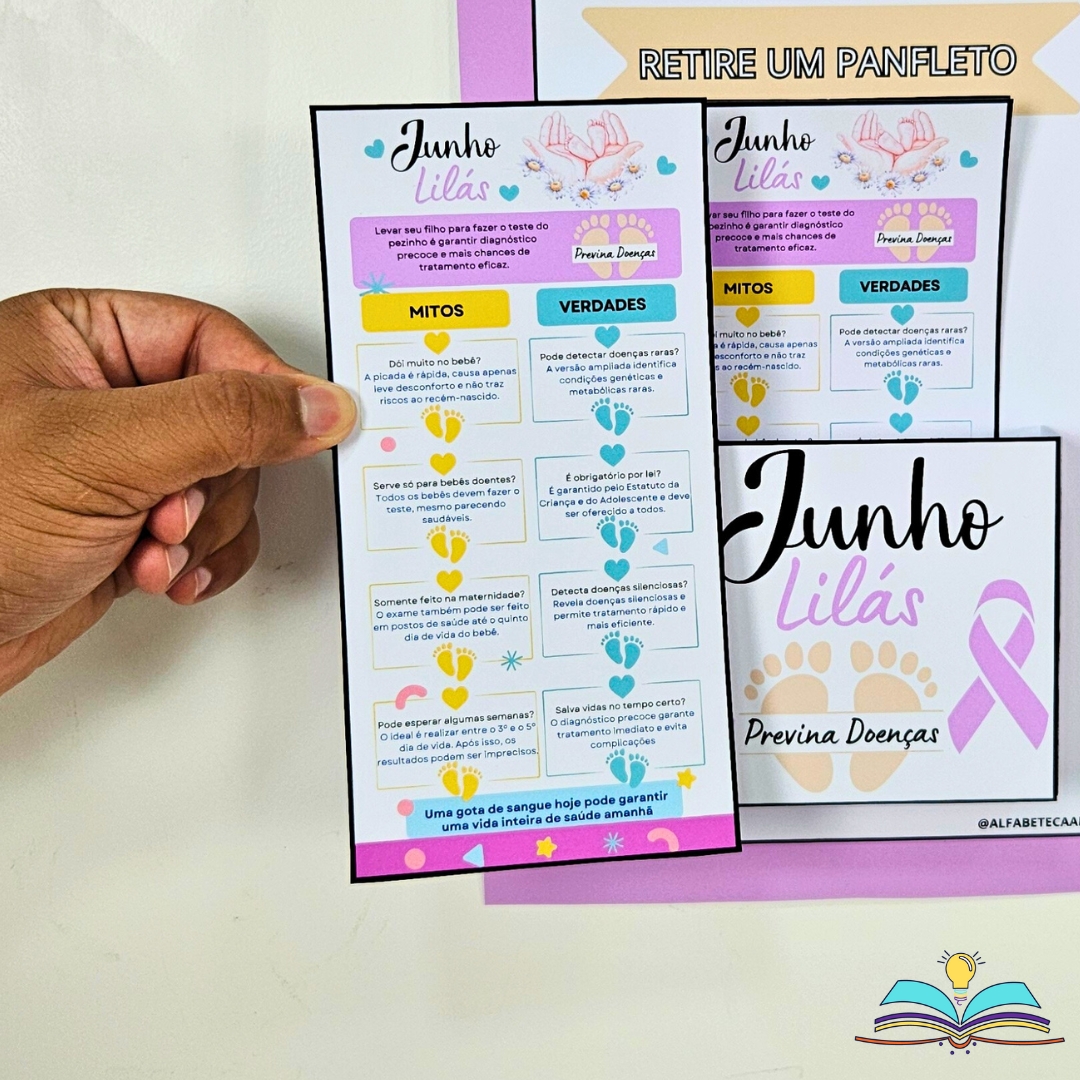 RETIRE UM PANFLETO
Junho
Lilás
Levar seu filho para fazer o teste do
pezinho é garantir diagnóstico
precoce e mais chances de
tratamento eficaz.
Previna Doenças
MITOS
Dói muito no bebê?
A picada é rápida, causa apenas
leve desconforto e não traz
riscos ao recém-nascido.
Serve só para bebês doentes?
Todos os bebês devem fazer o
teste, mesmo parecendo
saudáveis.
Somente feito na maternidade?
O exame também pode ser feito
em postos de saúde até o quinto
dia de vida do bebê.
Pode esperar algumas semanas?
O ideal é realizar entre o 3º e o 5º
dia de vida. Após isso, os
resultados podem ser imprecisos.
VERDADES
Pode detectar doenças raras?
A versão ampliada identifica
condições genéticas e
metabólicas raras.
É obrigatório por lei?
É garantido pelo Estatuto da
Criança e do Adolescente e deve
ser oferecido a todos.
Detecta doenças silenciosas?
Revela doenças silenciosas e
permite tratamento rápido e
mais eficiente.
Salva vidas no tempo certo?
O diagnóstico precoce garante
tratamento imediato e evita
complicações
Uma gota de sangue hoje pode garantir
uma vida inteira de saúde amanhã
Junho
Lilás
seu filho para fazer o teste do
pezinho é garantir diagnóstico
precoce e mais chances de
tratamento eficaz.
Previna Doenças
MITOS
muito no bebê?
é rápida, causa apenas
desconforto e não traz
ao recém-nascido.
VERDADES
Pode detectar doenças raras?
A versão ampliada identifica
condições genéticas e
metabólicas raras.
Junho
Lilás
Previna Doenças
@ALFABETECAA